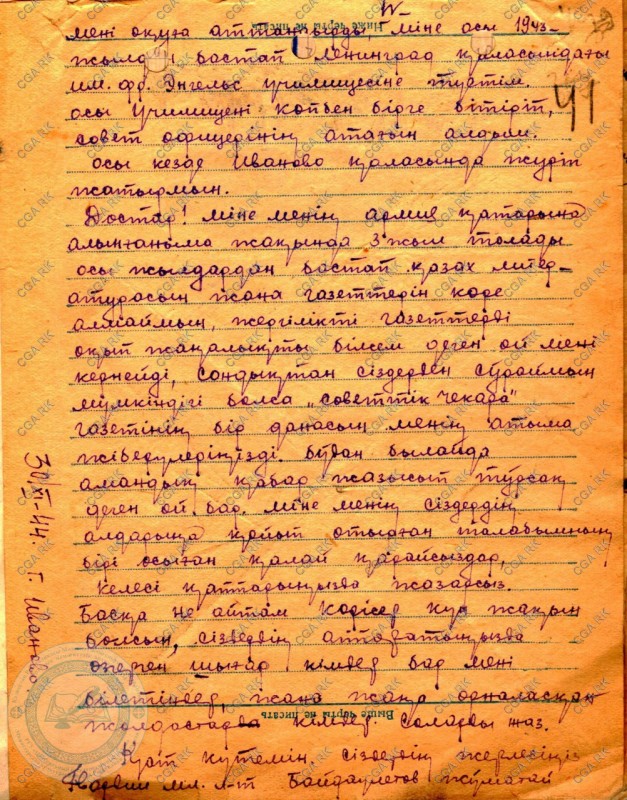 IV
Ниже черты не писать
мені оқуға аттандырды, міне осы 1943-
жылдан бастап Ленинград қаласындағы
им. Фр. Энгельс училищесіне түстім.
осы училищені көппен бірге бітіріп,
совет офицерінің атағын алдым.
осы кезде Иваново қаласында жүріп
жатырмын.
41
Достар! міне менің армия қатарына
алынғаныма жақында 3 жыл толады
осы жылдардан бастап қазах литер-
атурасын жана газеттерін көре
алмаймын, жергілікті газеттерді
оқып жаңалықты білсем деген ой мені
кернейді, сондықтан сіздерден сұраймын
мүмкіндігі болса „советтік чекара"
газетінің бір данасын менің атыма
жіберулеріңізді. бұдан былайда
амандық қабар жазысып тұрсақ
деген ой бар. міне менің сіздердің
алдарыңа қойып отырған талабымның
бірі осыған қалай қарайсыздар,
келесі қаттарыңызда жазарсыз.
Басқа не айтам көрісер күн жақын
болсын, сіздердің аппаратыңызда
өзгерген шығар кімдер бар мені
білетіндер, жана жаңа орналасқан
Выше черты не писать
жолдастарда кімдер соларды жаз.
Қат күтемін сіздердің жерлесіңіз
мл. л-т Байдаулетов Жұматай
30/XI-44. г. Иваново
CGA.RK